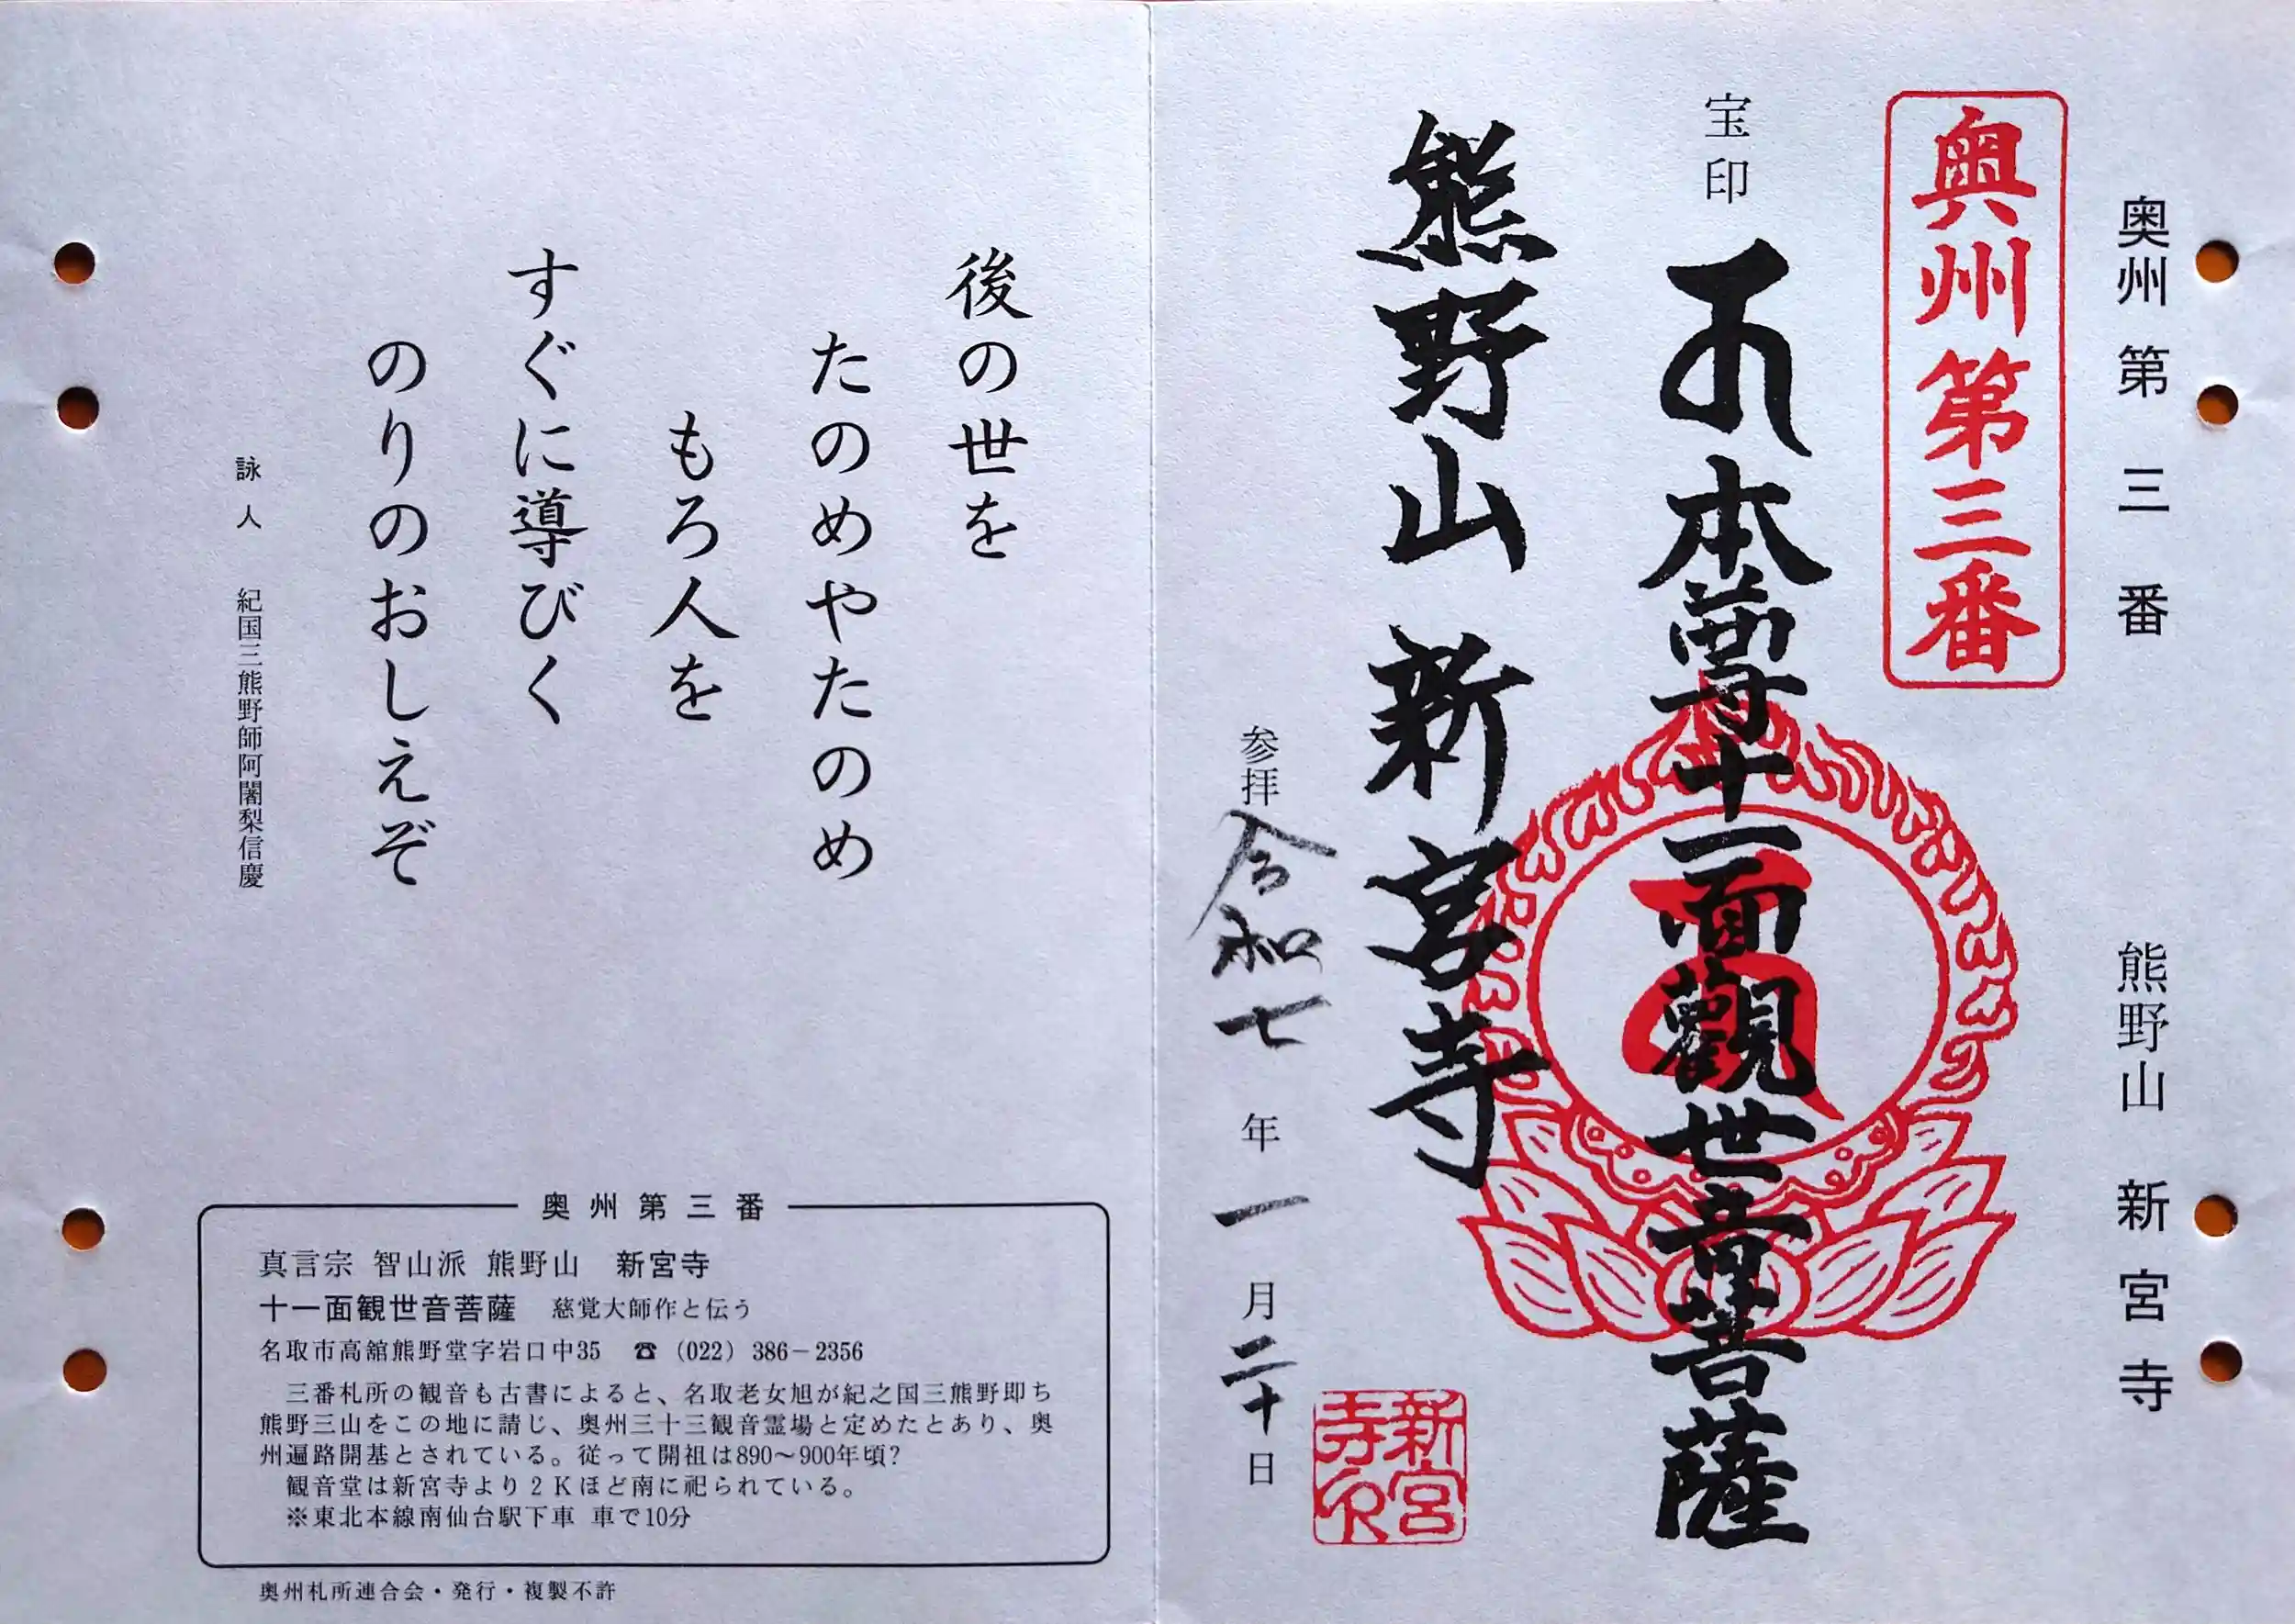 奥州第三番 熊野山 新宮寺
奥州第三番
宝印
本尊十一面觀世音菩薩
熊野山 新宮寺
参拝 令和七年一月二十日
新宮寺印
後の世を
たのめやたのめ
もろ人を
すぐに導びく
のりのおしえぞ
詠人 紀国三熊野師阿闍梨信慶
奥州第三番
真言宗 智山派 熊野山 新宮寺
十一面観世音菩薩 慈覚大師作と伝う
名取市高舘熊野堂字岩口中35 ☎（022）386−2356
三番札所の観音も古書によると、名取老女旭が紀之国三熊野即ち
熊野三山をこの地に請じ、奥州三十三観音霊場と定めたとあり、奥
州遍路開基とされている。従って開祖は890〜900年頃？
観音堂は新宮寺より2Kほど南に祀られている。
※東北本線南仙台駅下車 車で10分
奥州札所連合会・発行・複製不許